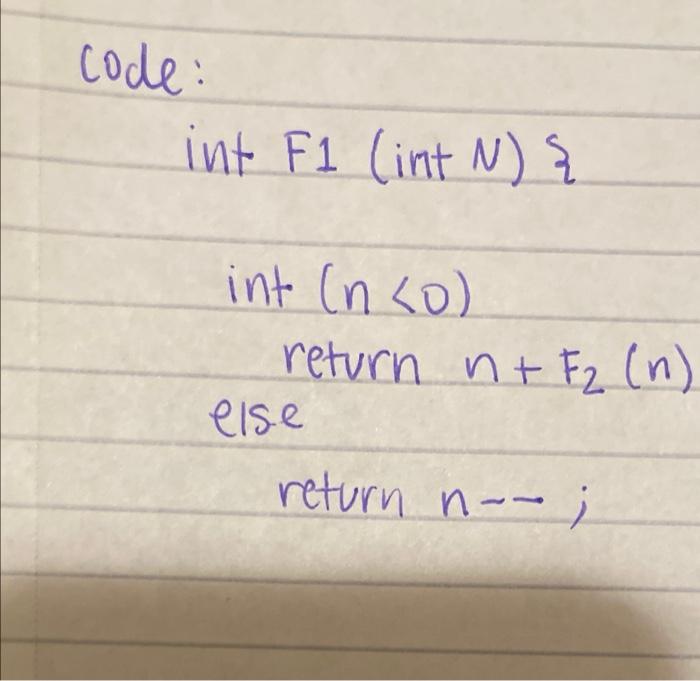 code:
int F1 (int N) {
int (n <0)
return n + F2 (n)
else
return n-- ;